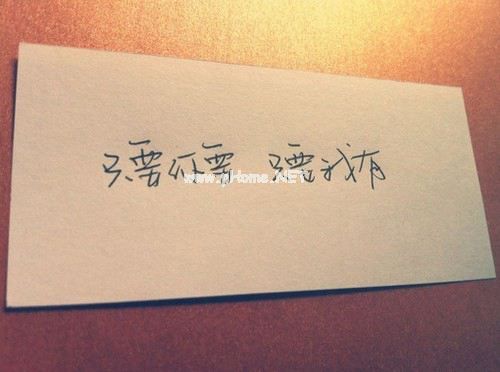 只要你要 只要我有
www.pHome.NET